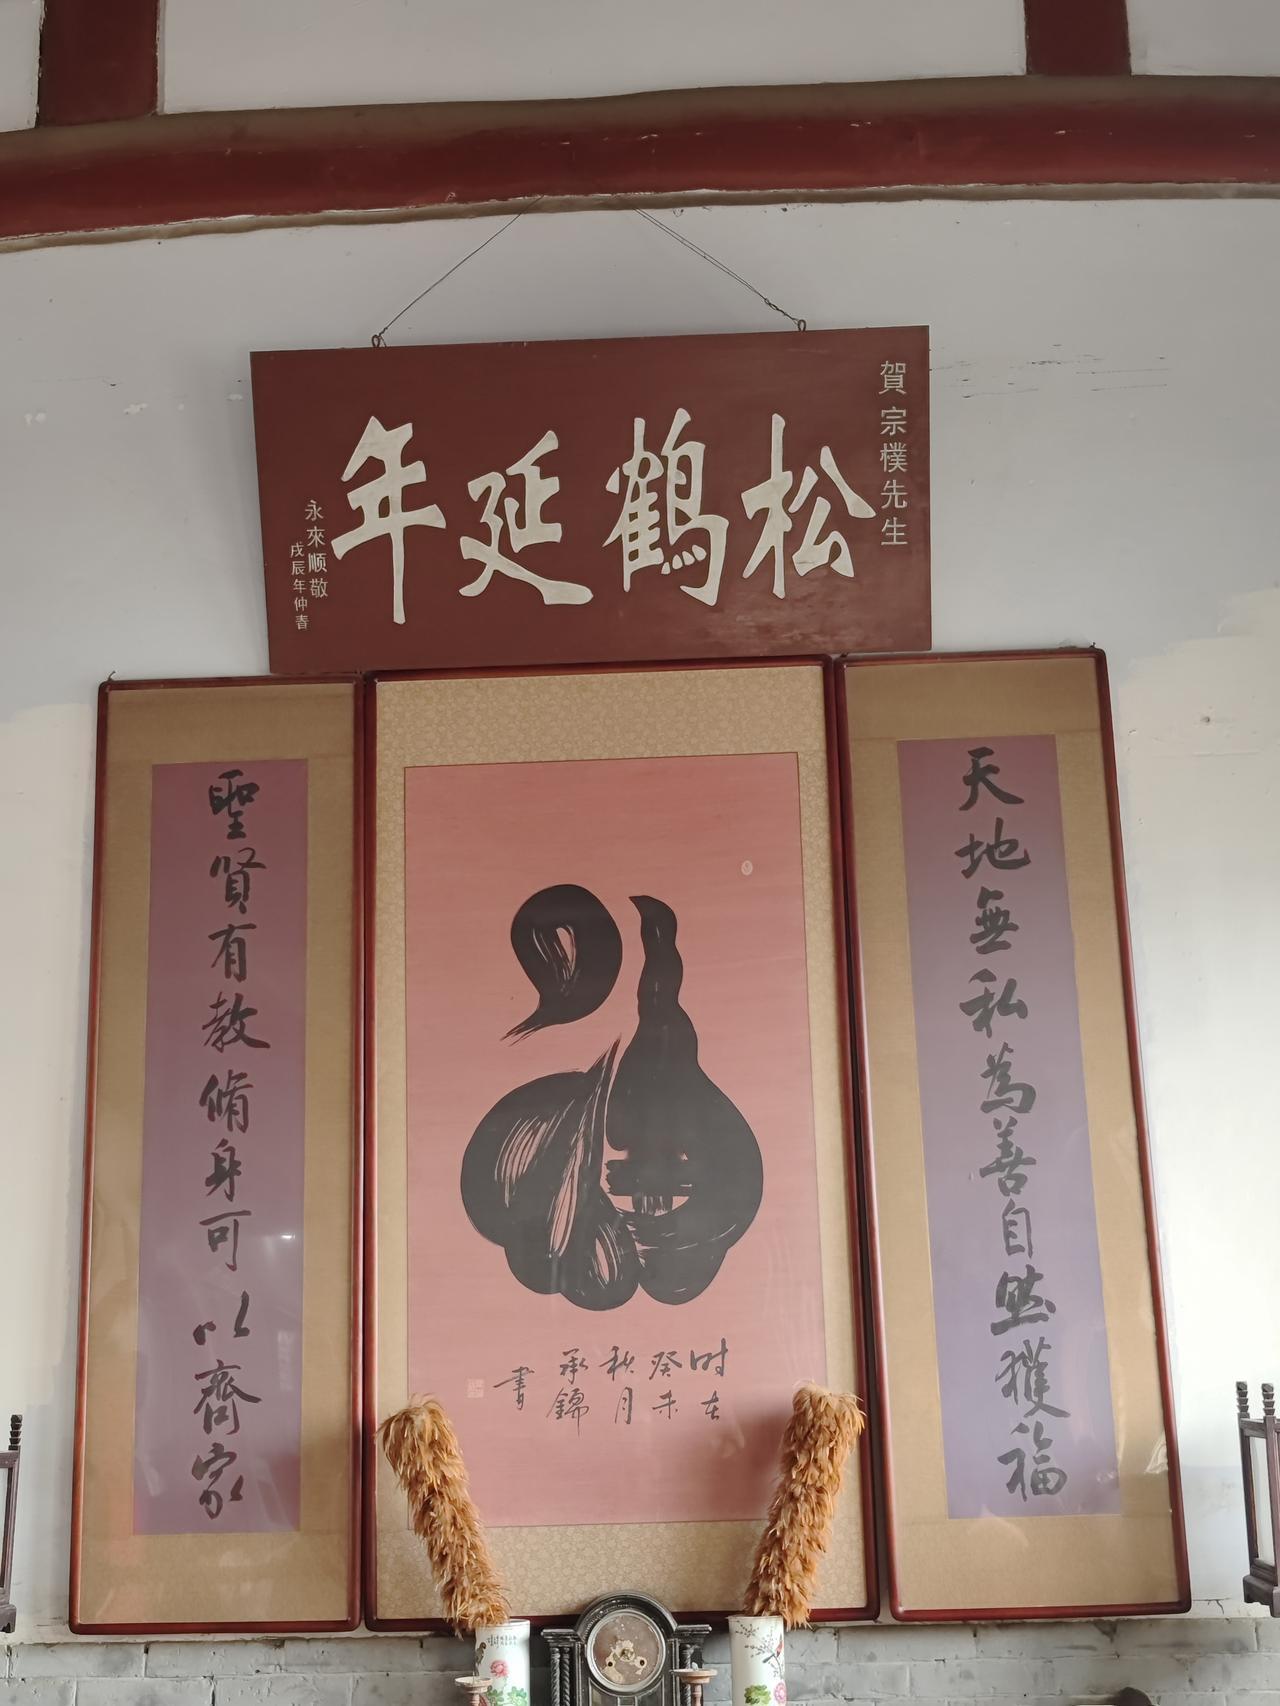 賀宗樸先生
松鶴延年
永來顺敬
戌辰年仲春
天地無私為善自然獲福
聖賢有教脩身可以齊家
时在
癸未
秋月
承錦
書